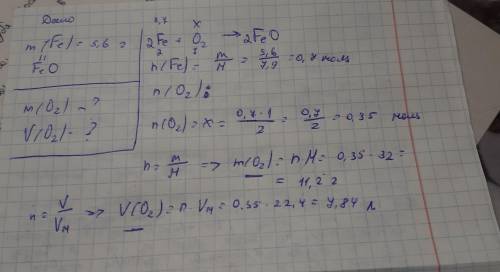 Дано
m(Fe) = 5,6 г
II
FeO
m(O₂) - ?
V(O₂) - ?
0,7 x
2Fe + O₂ → 2FeO
2 1
n(Fe) = m/M = 5,6/7,9 = 0,7 моль
n(O₂):
n(O₂) = x = 0,7·1/2 = 0,7/2 = 0,35 моль
n = m/M => m(O₂) = n·M = 0,35 · 32 =
= 11,2 г
n = V/Vм => V(O₂) = n · Vм = 0,35 · 22,4 = 7,84 л